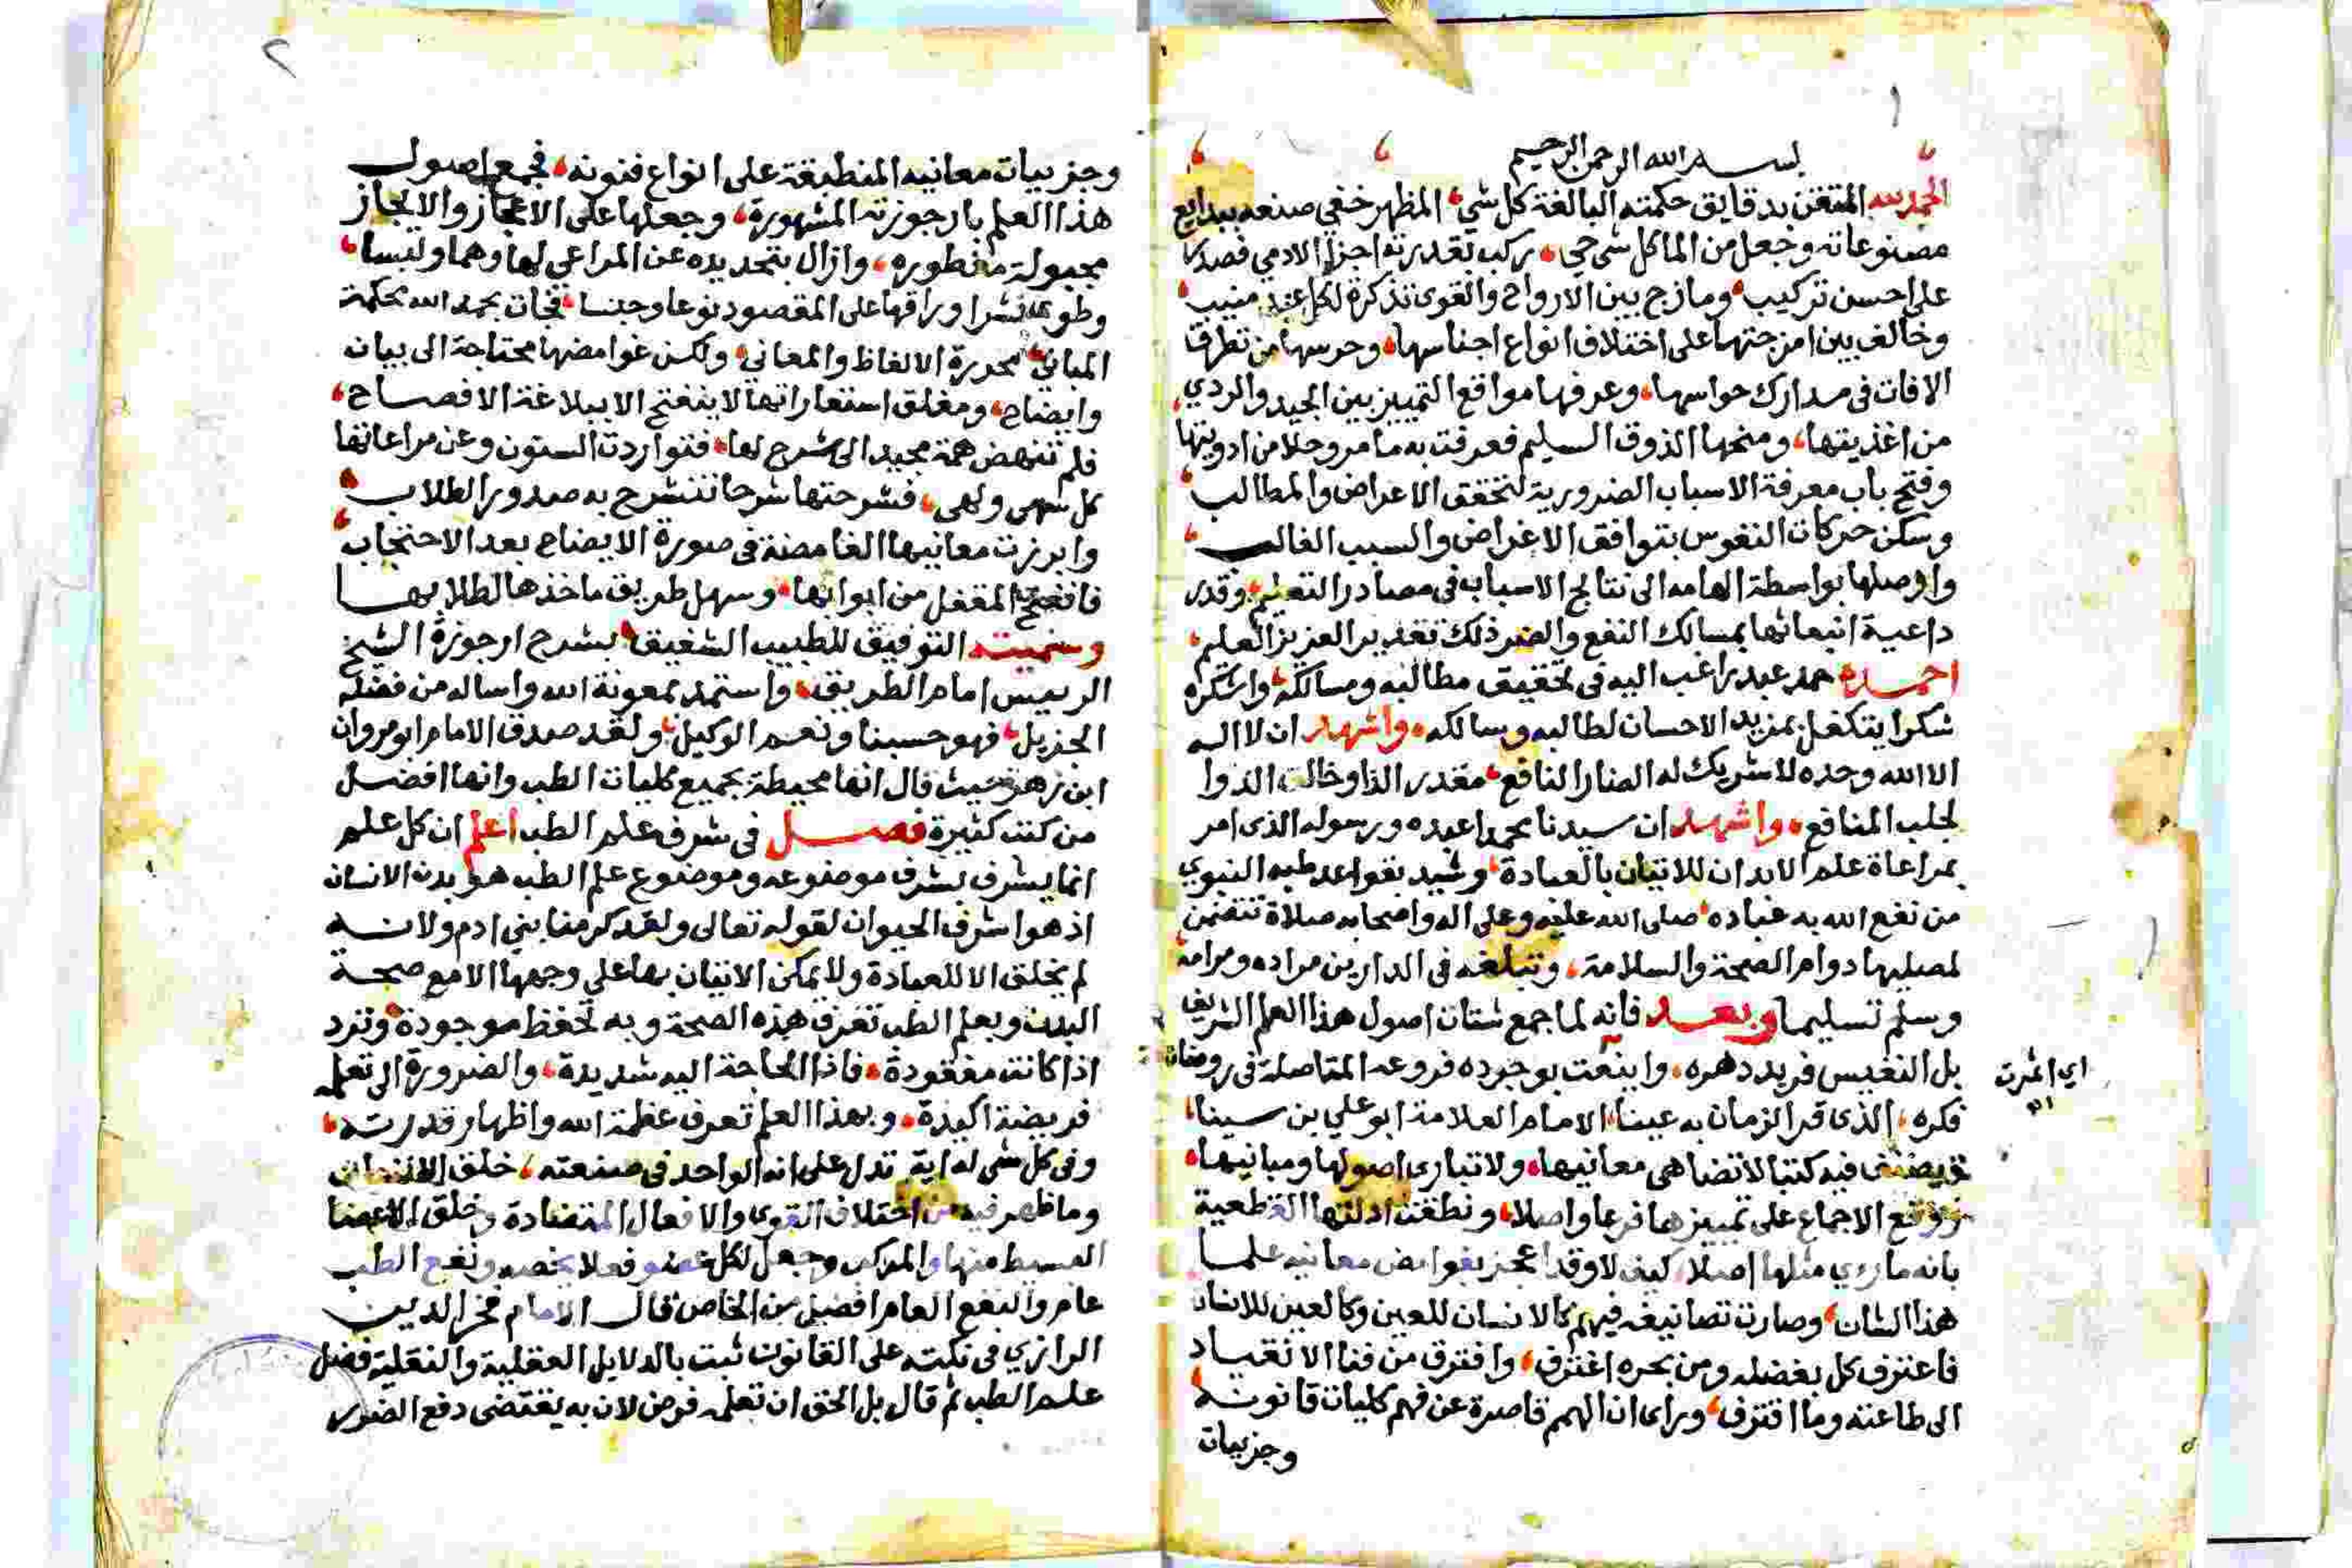 ١
بسم الله الرحمن الرحيم
الحمد لله المتقن بدقايق حكمته البالغة كل شي المظهر خفي صنعه ببدايع
مصنوعاته وجعل من الما كل شي حي ركب بقدرته اجزا الادمي فصدرها
على احسن تركيب ومازج بين الارواح والقوى تذكرة لكل عبد منيب
وخالف بين امزجتها على اختلاف انواع اجناسها وحرسها من تطرق
الافات في مدارك حواسها وعرفها مواقع التمييز بين الجيد والردي
من اغذيتها ومنحها الذوق السليم فعرفت به ما مر وحلا من ادويتها
وفتح باب معرفة الاسباب الضرورية لتحقق الاعراض والمطالب
وسكن حركات النفوس بتوافق الاغراض والسبب الغالب
واوصلها بواسطة الهامه الى نتايج الاسباب في مصادر التعليم وقدر
داعية انبعاثها بمسالك النفع والضر ذلك تقدير العزيز العليم
احمده حمد عبد راغب اليه في تحقيق مطالبه ومسالكه واشكره
شكرا يتكفل بمزيد الاحسان لطالبه وسالكه واشهد ان لا اله
الا الله وحده لا شريك له الضار النافع مقدر الدا وخالق الدوا
لجلب المنافع واشهد ان سيدنا محمدا عبده ورسوله الذى امر
بمراعاة علم الابدان للاتيان بالعبادة وشيد بقواعد طبه النبوي
من نفع الله به عباده صلى الله عليه وعلى اله واصحابه صلاة تتضمن
لمصليها دوام الصحة والسلامة وتبلغه في الدارين مراده ومرامه
وسلم تسليما وبعد فانه لما جمع شتات اصول هذا العلم الشريف
بل النفيس فريد دهره واينعت بوجوده فروعه المتاصلة في روضات
اي اثمرت
فكره الذى قر الزمان به عينا الامام العلامة ابو علي بن سينا
فيه كتبا لا تضاهى معانيها ولا تبارى اصولها ومبانيها
ووقع الاجماع على تمييزها فرعا واصلا ونطقت ادلتها القطعية
بانه ما روي مثلها اصلا كيف لا وقد اعجز بغوامض معانيه علما
هذا الشان وصارت تصانيفه فيهم كالانسان للعين وكالعين للانسان
فاعترف كل بفضله ومن بحره اغترف وافترق من فنا الانقياد
الى طاعته وما اقترف وراى ان الهمم قاصرة عن فهم كليات قانونه
وجزييات
٢
وجزييات معانيه المنطبقة على انواع فنونه فجمع اصول
هذا العلم بارجوزته المشهورة وجعلها على الاعجاز والايجاز
مجبولة مفطوره وازال بتحديده عن المراعي لها وهما ولبسا
وطوى نشرا وراقها على المقصود نوعا وجنسا فجات بحمد الله محكمة
المباني محررة الالفاظ والمعاني ولكن غوامضها محتاجة الى بيان
وايضاح ومغلق استعاراتها لا ينفتح الا ببلاغة الافصاح
فلم تنهض همة مجيد الى شرح لها فتواردت الستون وعن مراعاتها
كل سهى ولهى فشرحتها شرحا تنشرح به صدور الطلاب
وابرزت معانيها الغامضة في صورة الايضاح بعد الاحتجاب
فافتتح المقفل من ابوابها وسهل طريق ماخذها لطلابها
وسميته التوفيق للطبيب الشفيق بشرح ارجوزة الشيخ
الرييس امام الطريق واستمد بمعونة الله واساله من فضله
الجزيل فهو حسبنا ونعم الوكيل ولقد صدق الامام ابو مروان
ابن زهر حيث قال انها محيطة بجميع كليات الطب وانها افضل
من كتب كثيرة فصل في شرف علم الطب اعلم ان كل علم
انما يشرف بشرف موضوعه وموضوع علم الطب هو بدن الانسان
اذ هو اشرف الحيوان لقوله تعالى ولقد كرمنا بني ادم ولانه
لم يخلق الا للعبادة ولا يمكن الاتيان بها على وجهها الا مع صحة
البدن وبعلم الطب تعرف هذه الصحة وبه تحفظ موجودة وترد
اذا كانت مفقودة فاذا الحاجة اليه شديدة والضرورة الى تعلمه
فريضة اكيدة وبهذا العلم تعرف عظمة الله واظهار قدرته
وفى كل شى له اية تدل على انه الواحد في صنعته خلق الانسان
وما ظهر فيه من اختلاف القوى والافعال المتضادة وخلق الاعضا
البسيط منها والمركب وجعل لكل عضو فعلا يخصه ونفع الطب
عام والنفع العام افضل من الخاص قال الامام فخر الدين
الرازي في نكته على القانون ثبت بالدلايل العقلية والنقلية فضل
علم الطب ثم قال بل الحق ان تعلمه فرض لان به يقتضى دفع الضرر